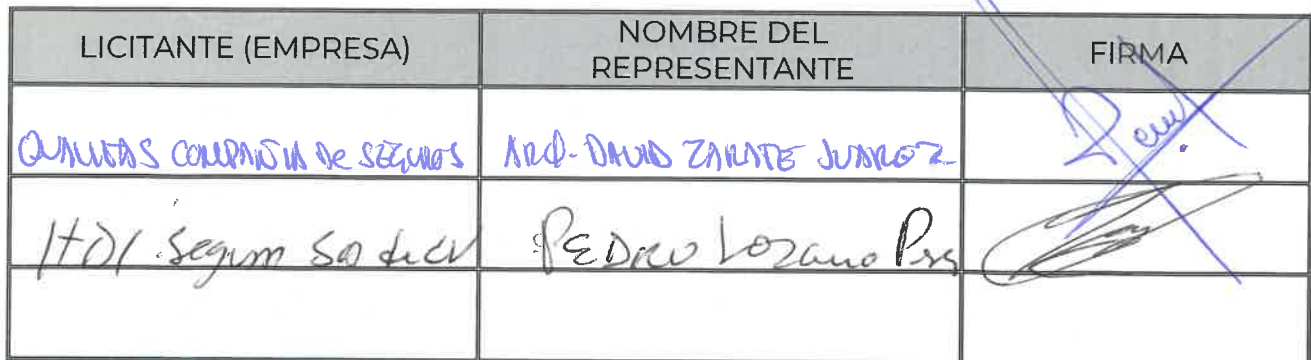 LICITANTE (EMPRESA) NOMBRE DEL REPRESENTANTE FIRMA
QUALITAS COMPAÑIA De SEGUROS ARQ. DAVID ZARATE JUAREZ
HDI Segum Sa de CV PEDRO Lozano